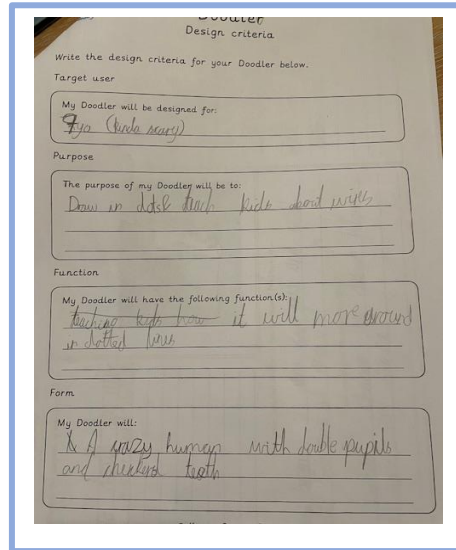 Doodler
Design criteria
Write the design criteria for your Doodler below.
Target user
My Doodler will be designed for:
9yo (kinda scary)
Purpose
The purpose of my Doodler will be to:
Draw in dots & teach kids about wires
Function
My Doodler will have the following function(s):
teaching kids how it will move around
in dotted lines
Form
My Doodler will:
A crazy human with double pupils
and checkerd teeth